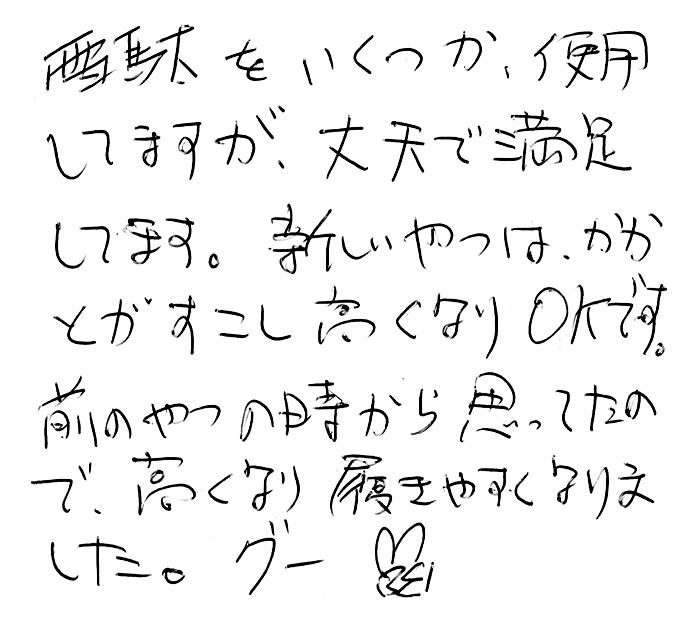 雪駄をいくつか、使用
してますが、丈夫で満足
してます。新しいやつは、かか
とがすこし高くなりOKです。
前のやつの時から思ってたの
で、高くなり履きやすくなりま
した。グー